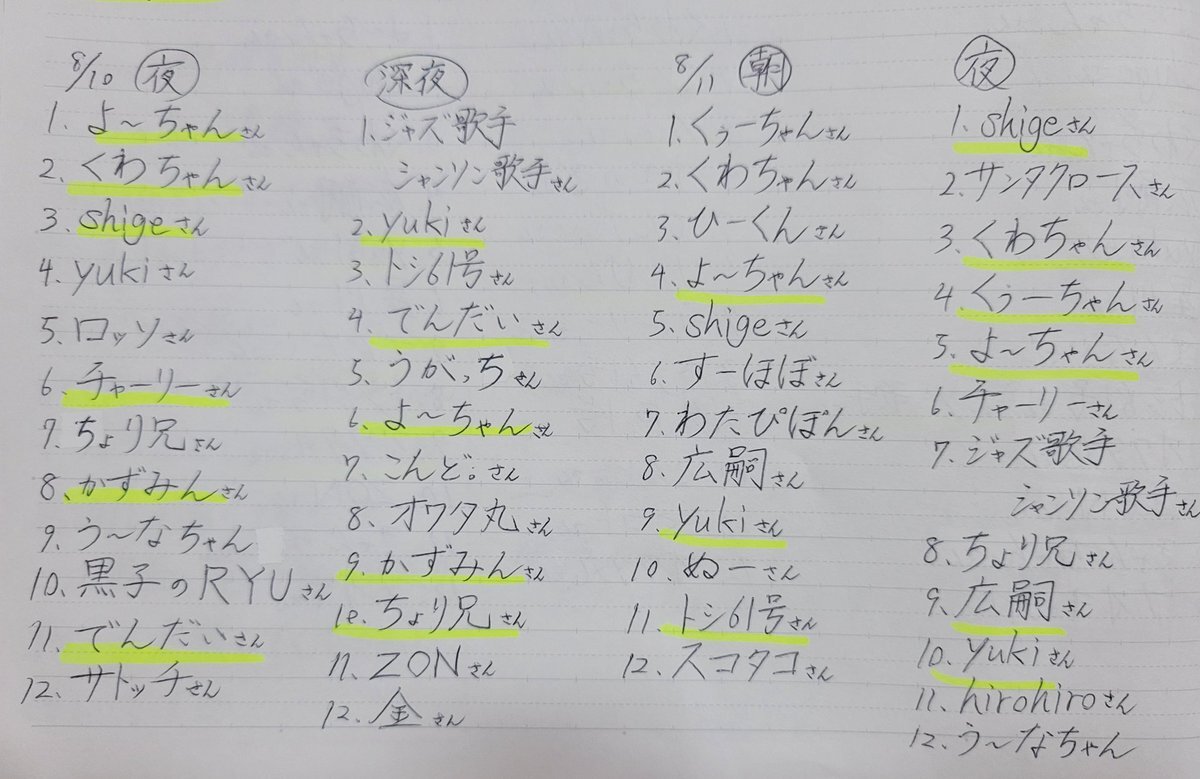 8/10 夜
1. よ～ちゃんさん
2. くわちゃんさん
3. shigeさん
4. yukiさん
5. ロッソさん
6. チャーリーさん
7. ちょり兄さん
8. かずみんさん
9. う～なちゃん
10. 黒子のRYUさん
11. でんだいさん
12. サトッチさん
深夜
1. ジャズ歌手
シャンソン歌手さん
2. yukiさん
3. トシ61号さん
4. でんだいさん
5. うがっちさん
6. よ～ちゃんさん
7. こんど。さん
8. オワタ丸さん
9. かずみんさん
10. ちょり兄さん
11. ZONさん
12. 金さん
8/11 朝
1. くぅーちゃんさん
2. くわちゃんさん
3. ひーくんさん
4. よ～ちゃんさん
5. shigeさん
6. すーほぼさん
7. わたぴぽんさん
8. 広嗣さん
9. yukiさん
10. ぬーさん
11. トシ61号さん
12. スコタコさん
夜
1. shigeさん
2. サンタクロースさん
3. くわちゃんさん
4. くぅーちゃんさん
5. よ～ちゃんさん
6. チャーリーさん
7. ジャズ歌手
シャンソン歌手さん
8. ちょり兄さん
9. 広嗣さん
10. yukiさん
11. hirohiroさん
12. う～なちゃん